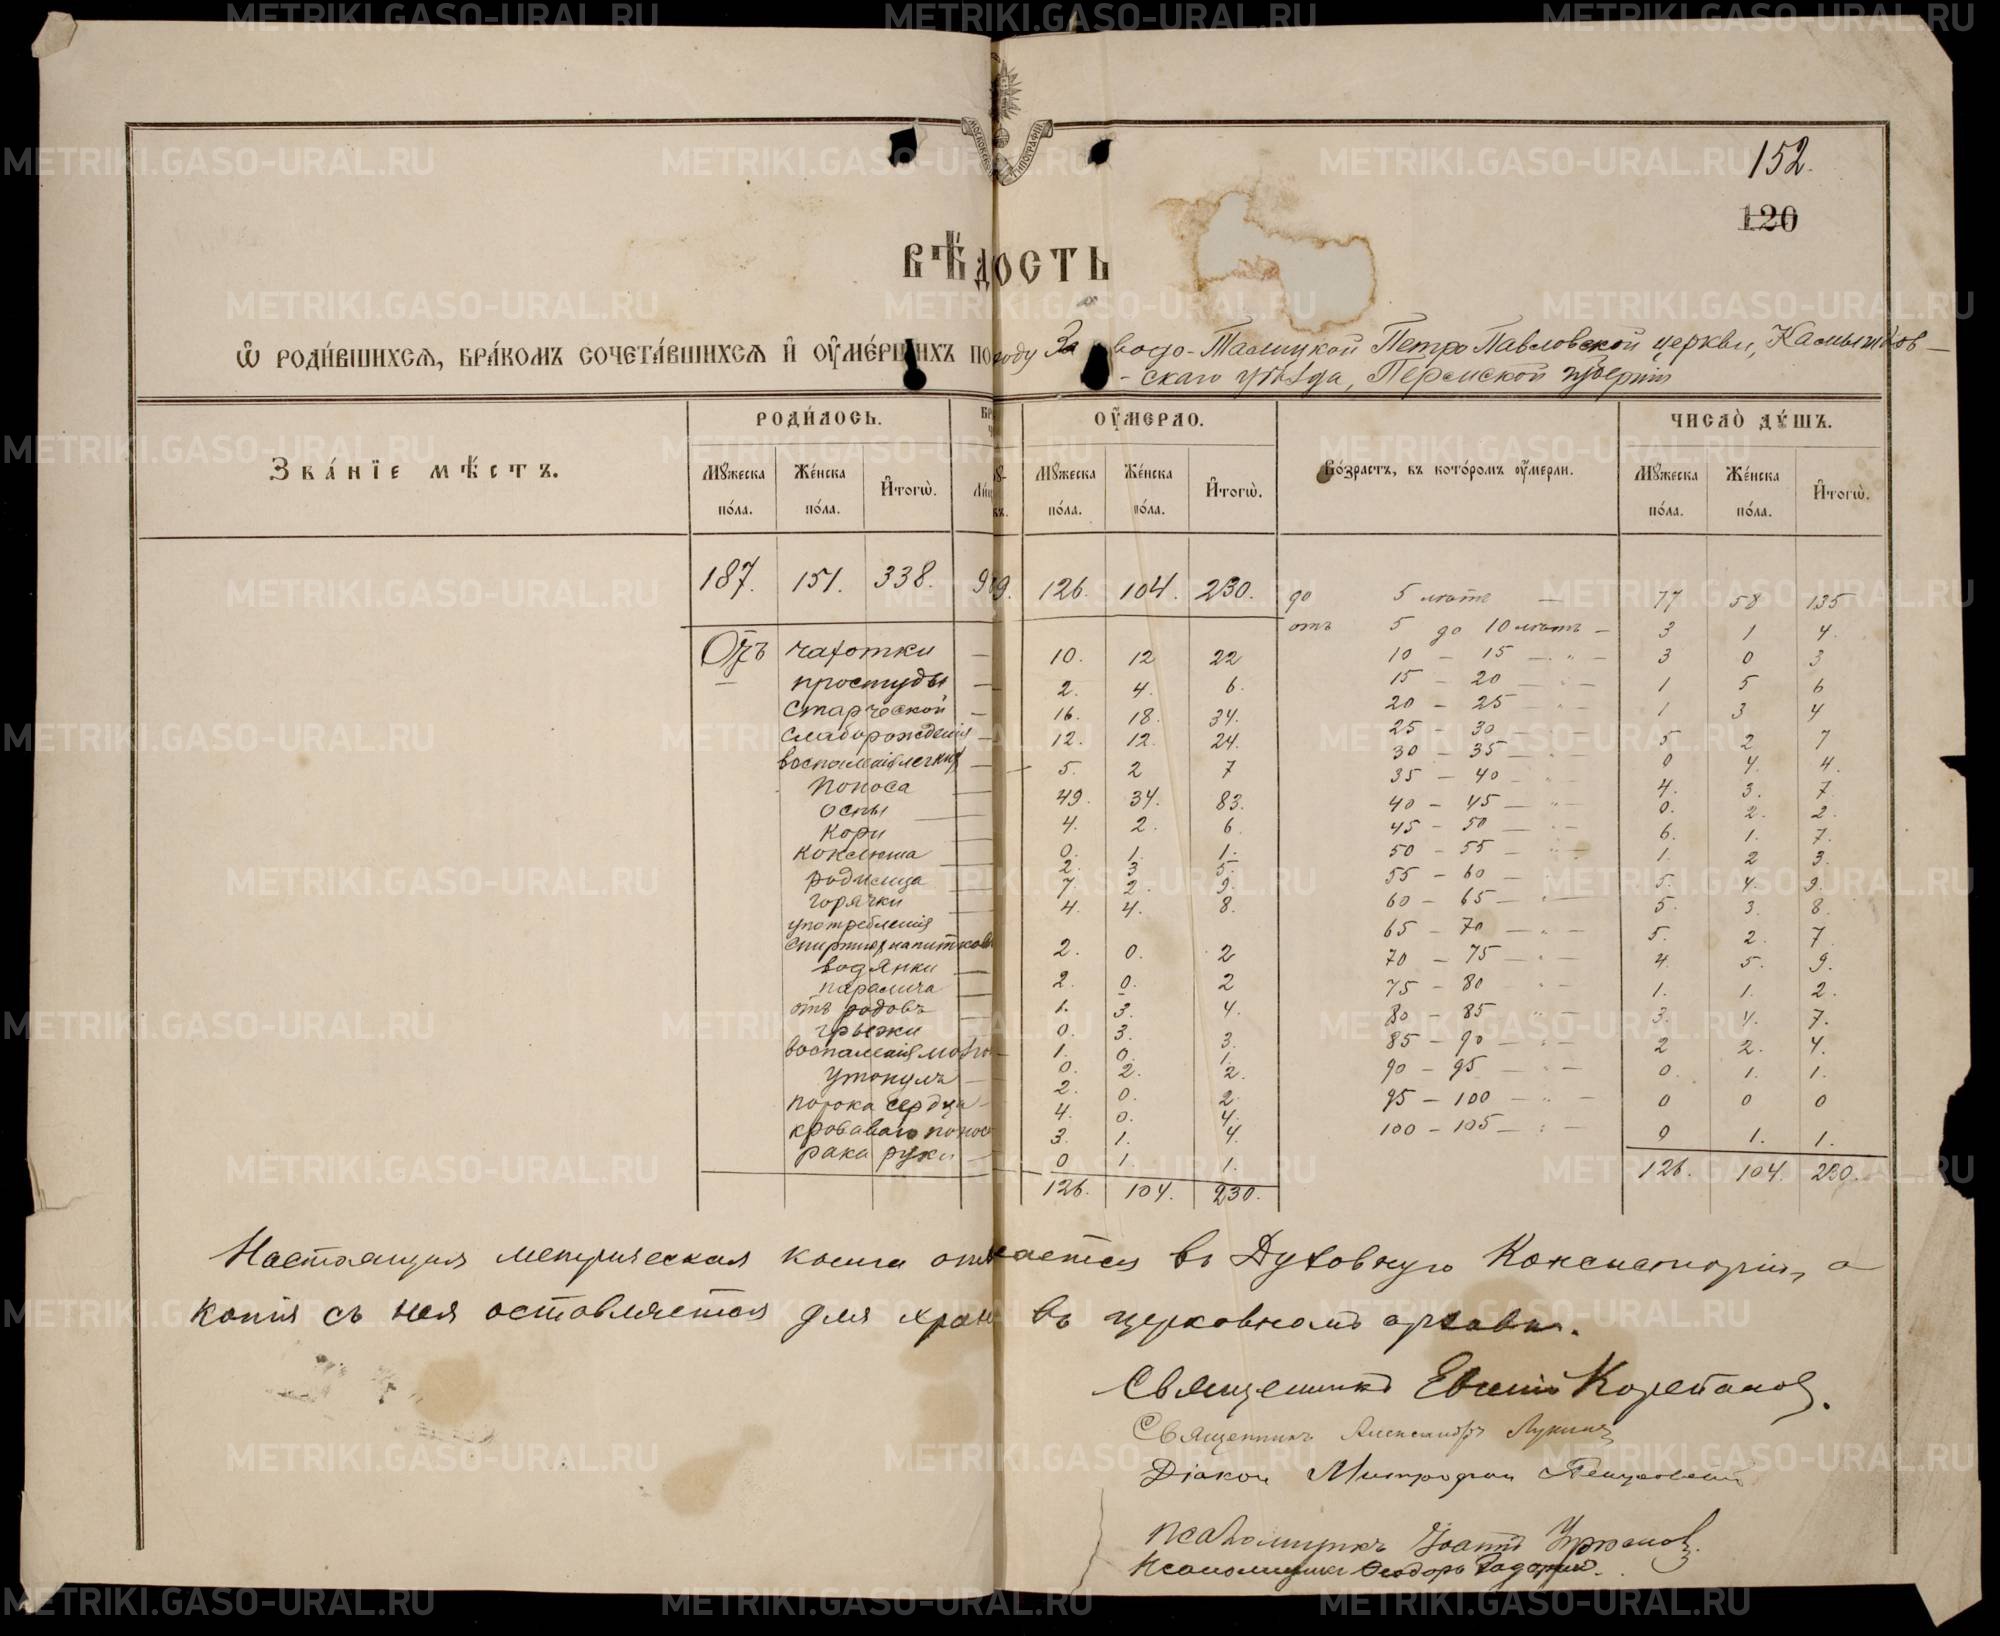 МОСКОВСК ТИПОГРАФІИ
152.
120
ВѢДОСТЬ
Ѡ РОДИ́ВШИХСѦ, БРА́КОМЪ СОЧЕТА́ВШИХСѦ И҆ ОУ҆МЕ́РШИХЪ ПО го́ду За водо-Талицкой Петро Павловской церкви, Камышлов-
-скаго уѣзда, Пермской губерніи
Зва́нїе мѣ́стъ. РОДИ́ЛОСЬ. БР ОУ҆МЕРЛО. Во́зрастъ, въ кото́ромъ оу҆мерли. ЧИСЛО̀ ДꙊ́ШЪ.
Мꙋжеска по́ла. Же́нска по́ла. И҆тогѡ̀. Мꙋжеска по́ла. Же́нска по́ла. И҆тогѡ̀. Мꙋжеска по́ла. Же́нска по́ла. И҆тогѡ̀.
187. 151. 338. 126. 104. 230. до 5 лѣтъ — 77 58 135
отъ 5 до 10 лѣтъ — 3 1 4.
Отъ чахотки — 10. 12 22 10 — 15 — " — 3 0 3
простуды — 2. 4. 6. 15 — 20 — " — 1 5 6
старческой — 16. 18. 34. 20 — 25 — " — 1 3 4
слаборожденія — 12. 12. 24. 25 — 30 — 5 2 7
воспаленія легкихъ — 5. 2 7 30 — 35 — 0 4. 4.
поноса — 49. 34. 83. 35 — 40 — " — 4. 3. 7
оспы — 4. 2. 6. 40 — 45 — " — 0. 2. 2.
кори — 0. 1. 1. 45 — 50 — " — 6. 1. 7.
коклюша — 2. 3 5. 50 — 55 — " — 1. 2 3.
родимца — 7. 2. 9. 55 — 60 — 5. 4. 9.
горячки — 4. 4. 8. 60 — 65 — " — 5. 3. 8.
употребленія
спиртныхъ напитковъ 2. 0. 2 65 — 70 — " — 5. 2. 7
водянки — 2. 0. 2 70 — 75 — " — 4. 5. 9.
паралича — 1. 3. 4. 75 — 80 — " — 1. 1. 2.
отъ родовъ — 0. 3. 3. 80 — 85 " — 3. 4. 7.
грыжи — 1. 0. 1. 85 — 90 — " — 2 2. 4.
воспаленія мозга — 0. 2. 2. 90 — 95 — " — 0. 1. 1.
утонулъ — 2. 0. 2. 95 — 100 — " — 0 0 0
порока сердца — 4. 0. 4. 100 — 105 — " — 0 1. 1.
кроваваго понос 3. 1. 4.
рака руки — 0 1. 1. 126. 104. 230.
126. 104. 230.
Настоящая метрическая книга въ Духовную Консисторію, а
копія съ нея оставляется для хран въ церковномъ архивѣ.
Священникъ Евгеній Корепановъ.
Священникъ Александръ Лукинъ
Діаконъ Митрофанъ
Псаломщикъ Іоаннъ
Псаломщикъ Ѳеодоръ
METRIKI.GASO-URAL.RU